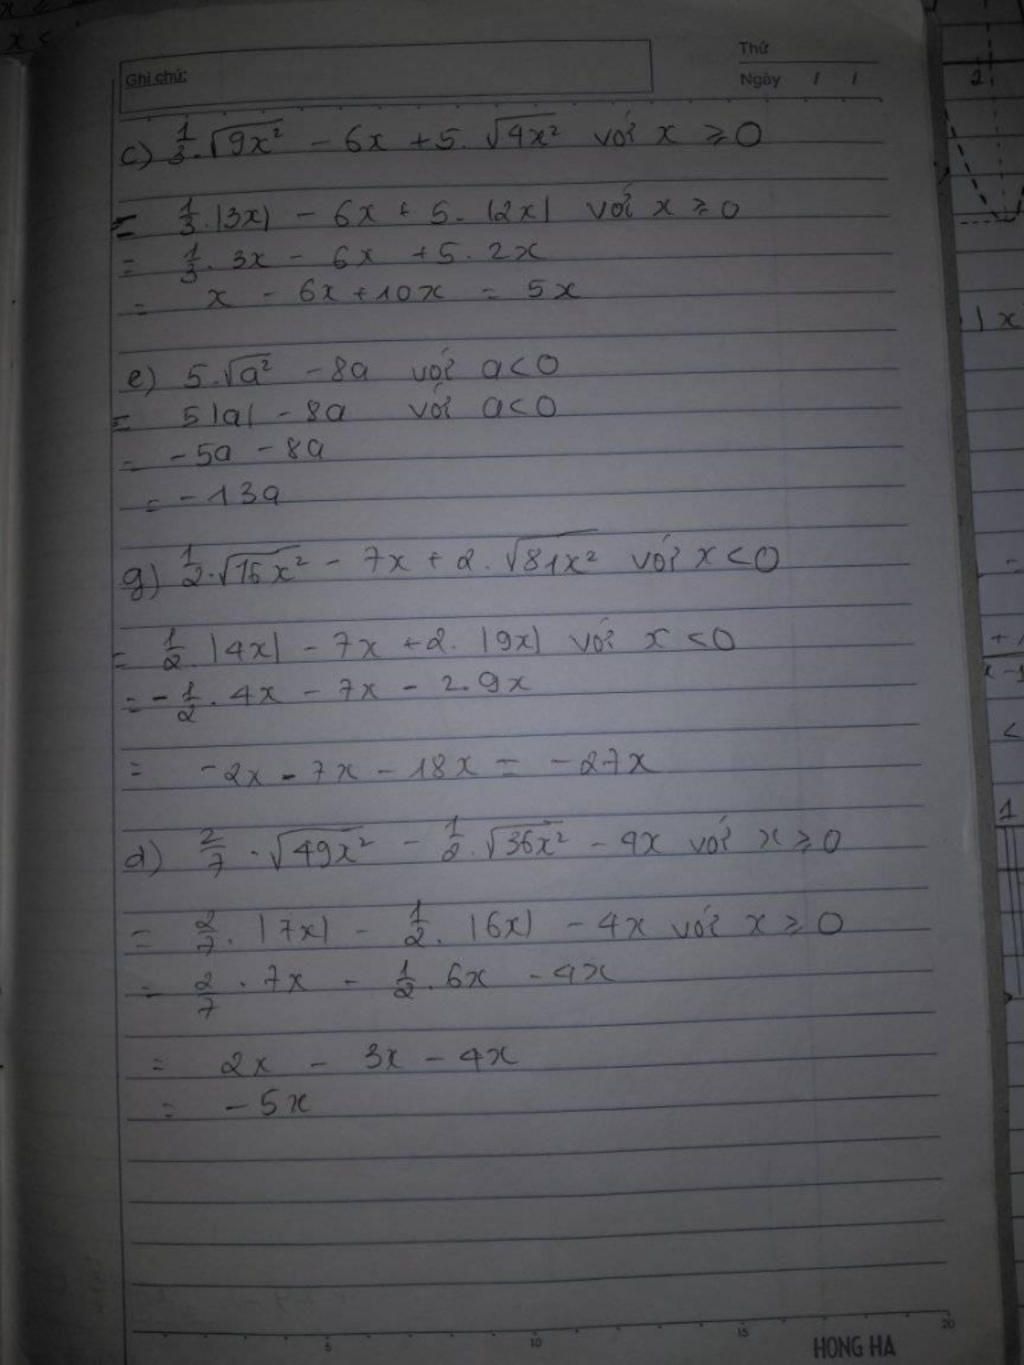 Ghi chú:
Thứ
Ngày / /
c) 1/3.√9x² - 6x + 5. √4x² với x ≥ 0
= 1/3.|3x| - 6x + 5. |2x| với x ≥ 0
= 1/3. 3x - 6x + 5. 2x
= x - 6x + 10x = 5x
e) 5.√a² - 8a với a < 0
= 5|a| - 8a với a < 0
= -5a - 8a
= -13a
g) 1/2.√16x² - 7x + 2. √81x² với x < 0
= 1/2. |4x| - 7x + 2. |9x| với x < 0
= -1/2. 4x - 7x - 2.9x
= -2x - 7x - 18x = -27x
d) 2/7 . √49x² - 1/2. √36x² - 4x với x ≥ 0
= 2/7. |7x| - 1/2. |6x| - 4x với x ≥ 0
= 2/7 . 7x - 1/2. 6x - 4x
= 2x - 3x - 4x
= -5x
5 10 15 20
HONG HA